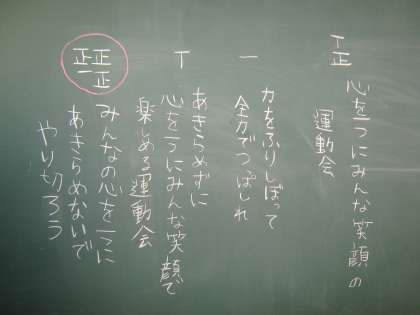 丅正
心を一つにみんな笑顔の
運動会
一
力をふりしぼって
全力でつっぱしれ
丅
あきらめずに
心を一つにみんな笑顔で
楽しめる運動会
正正正一
みんなの心を一つに
あきらめないで
やり切ろう